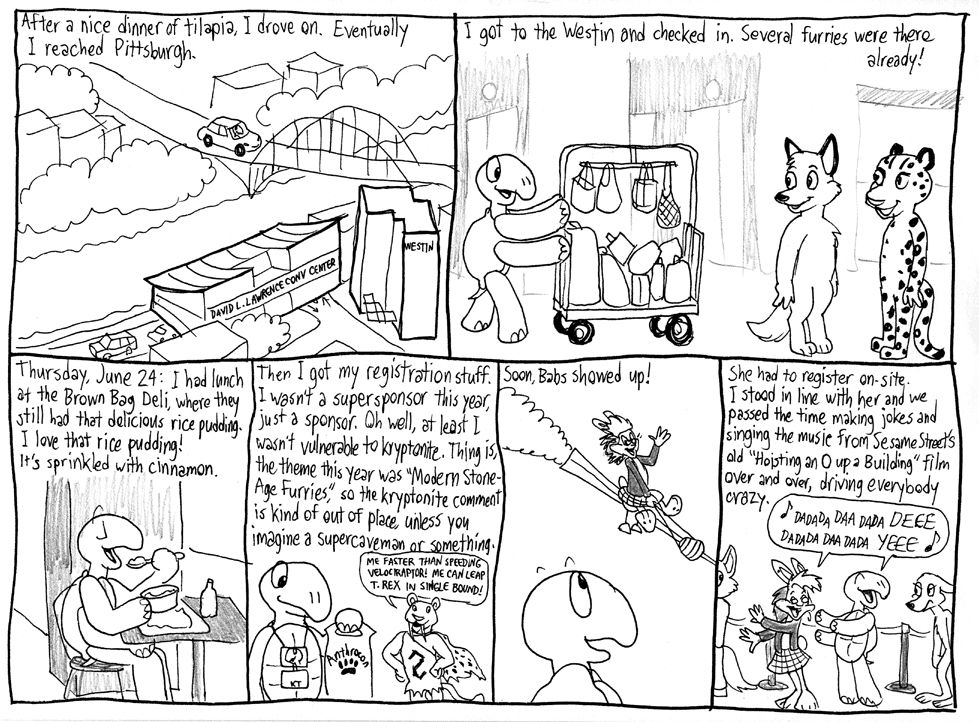 After a nice dinner of tilapia, I drove on. Eventually
I reached Pittsburgh.
DAVID L. LAWRENCE CONV CENTER
WESTIN
I got to the Westin and checked in. Several furries were there
already!
Thursday, June 24: I had lunch
at the Brown Bag Deli, where they
still had that delicious rice pudding.
I love that rice pudding!
It's sprinkled with cinnamon.
Then I got my registration stuff.
I wasn't a supersponsor this year,
just a sponsor. Oh well, at least I
wasn't vulnerable to kryptonite. Thing is,
the theme this year was "Modern Stone-
Age Furries," so the kryptonite comment
is kind of out of place, unless you
imagine a supercaveman or something.
ME FASTER THAN SPEEDING
VELOCIRAPTOR! ME CAN LEAP
T. REX IN SINGLE BOUND!
Anthrocon
KT
Soon, Babs showed up!
She had to register on-site.
I stood in line with her and we
passed the time making jokes and
singing the music from Sesame Street's
old "Hoisting an O up a Building" film
over and over, driving everybody
crazy.
♪ DADADA DAA DADA DEEE
DADADA DAA DADA YEEE ♪